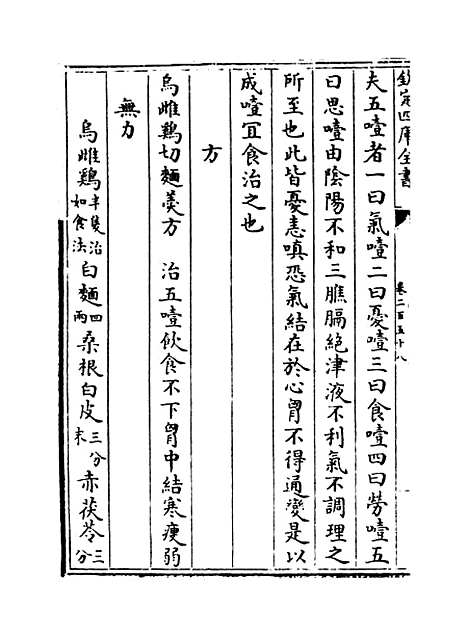 欽定四庫全書
卷二百五十八
夫五噎者一曰氣噎二曰憂噎三曰食噎四曰勞噎五
曰思噎由陰陽不和三膲膈絶津液不利氣不調理之
所至也此皆憂恚嗔恐氣結在於心胷不得通變是以
成噎宜食治之也
方
烏雌鷄切麵羮方 治五噎飲食不下胷中結寒痩弱
無力
烏雌鷄半隻治如食法白麵四兩桑根白皮三分末赤茯苓三分